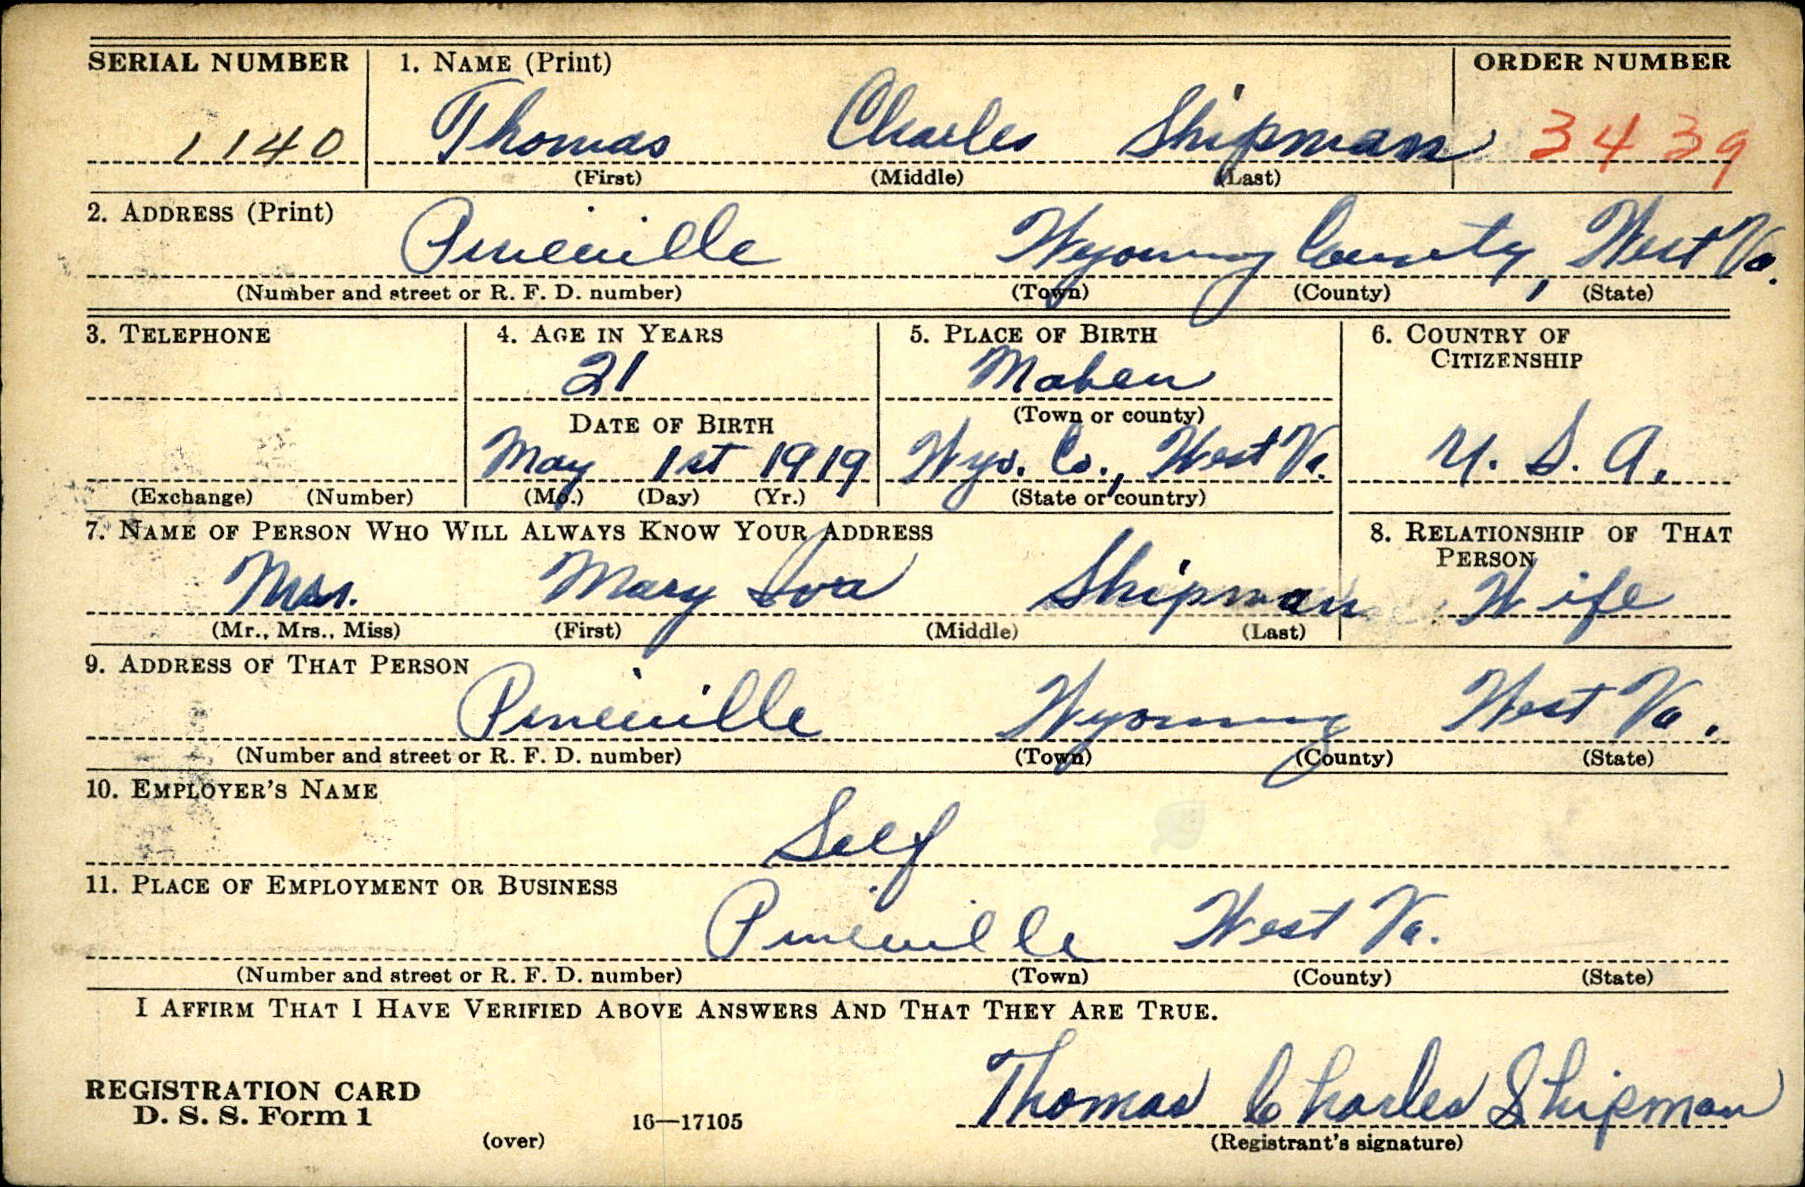 SERIAL NUMBER 1. NAME (Print) ORDER NUMBER
1140 Thomas Charles Shipman 3439
(First) (Middle) (Last)
2. ADDRESS (Print)
Pineville Wyoming County, West Va.
(Number and street or R. F. D. number) (Town) (County) (State)
3. TELEPHONE 4. AGE IN YEARS 5. PLACE OF BIRTH 6. COUNTRY OF CITIZENSHIP
21 Maben
DATE OF BIRTH (Town or county)
May 1st 1919 Wyo. Co., West Va. U. S. A.
(Exchange) (Number) (Mo.) (Day) (Yr.) (State or country)
7. NAME OF PERSON WHO WILL ALWAYS KNOW YOUR ADDRESS 8. RELATIONSHIP OF THAT PERSON
Mrs. Mary Iva Shipman Wife
(Mr., Mrs., Miss) (First) (Middle) (Last)
9. ADDRESS OF THAT PERSON
Pineville Wyoming West Va.
(Number and street or R. F. D. number) (Town) (County) (State)
10. EMPLOYER'S NAME
Self
11. PLACE OF EMPLOYMENT OR BUSINESS
Pineville West Va.
(Number and street or R. F. D. number) (Town) (County) (State)
I AFFIRM THAT I HAVE VERIFIED ABOVE ANSWERS AND THAT THEY ARE TRUE.
REGISTRATION CARD
D. S. S. Form 1
(over) 16—17105
Thomas Charles Shipman
(Registrant's signature)